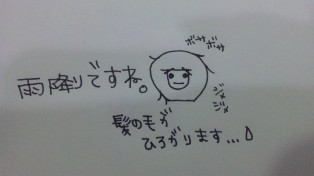 雨降りですね。
ボサボサ
ジメジメ
髪の毛が
ひろがります…